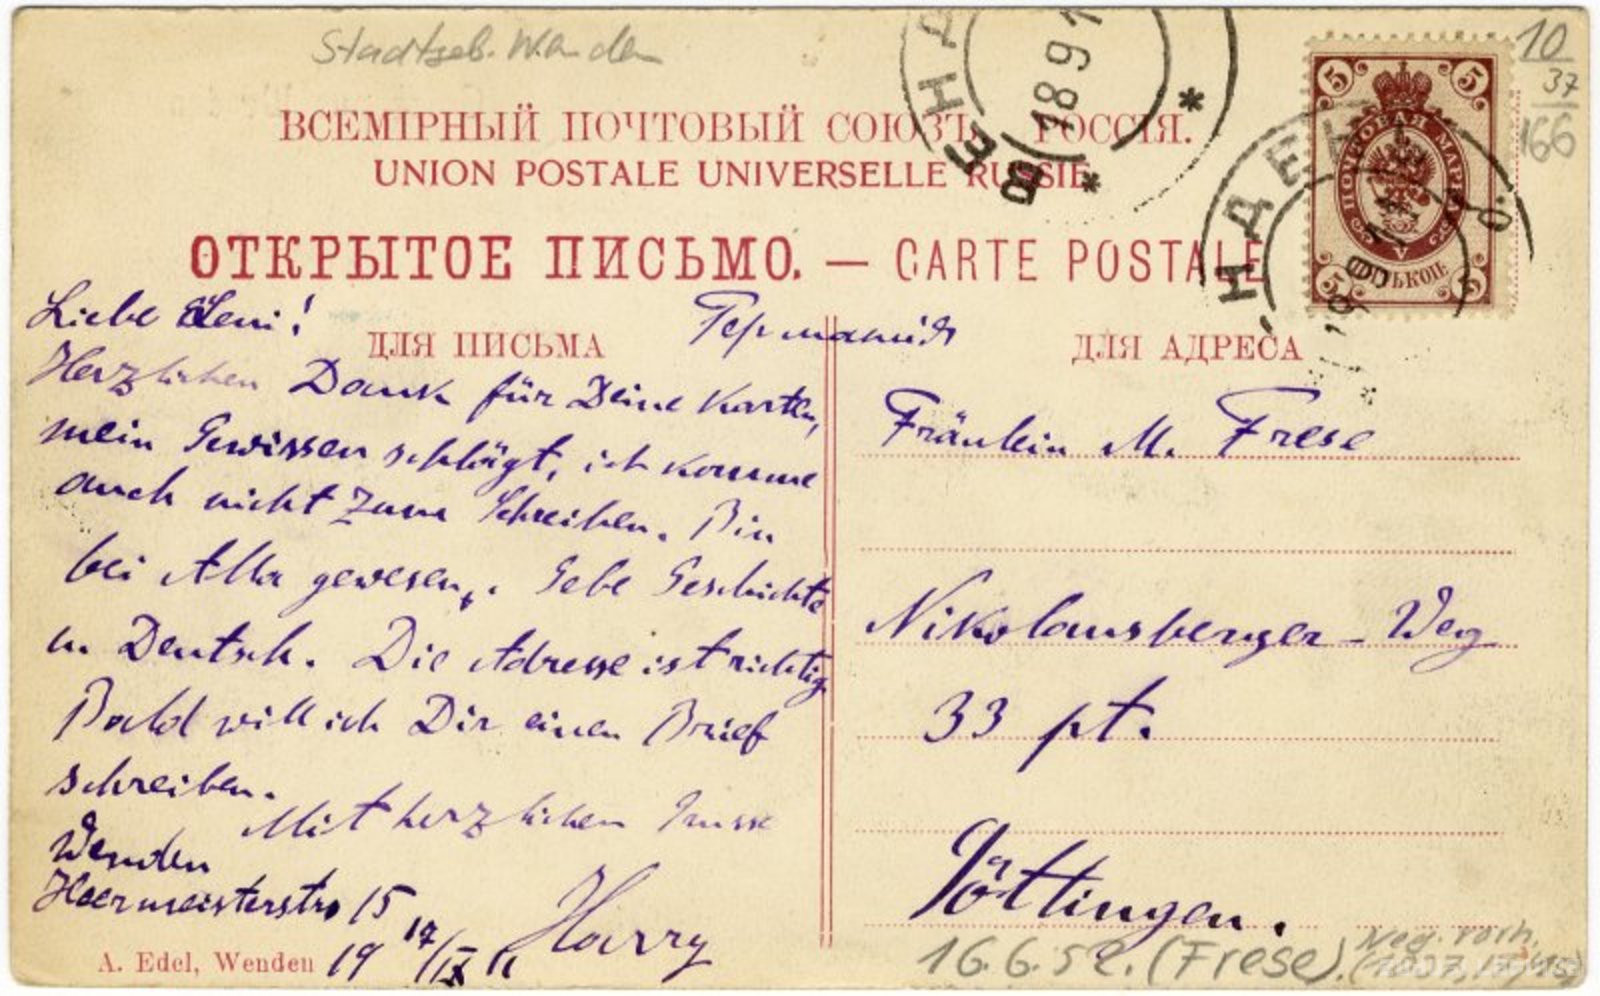 Stadtgeb. Wenden
10
37
166
ВЕНД
18 9 1
ВСЕМІРНЫЙ ПОЧТОВЫЙ СОЮЗЪ. РОССІЯ.
UNION POSTALE UNIVERSELLE RUSSIE
ОТКРЫТОЕ ПИСЬМО. — CARTE POSTALE
5 5
ПОЧТОВАЯ МАРКА
5 КОП.
5 5
НДЕ
Liebe Leni!
Германія
ДЛЯ ПИСЬМА
ДЛЯ АДРЕСА
Herzlichen Dank für Deine Karten,
mein Gewissen schlägt, ich komme
auch nicht zum Schreiben. Bin
bei Alla gewesen. Gebe Geschichte
u. Deutsch. Die Adresse ist richtig
Bald will ich Dir einen Brief
schreiben.
Mit herzlichen Grusse
Wenden
Heermeisterstr. 15
19 17/IX 11
Harry
A. Edel, Wenden
Fräulein M. Frese
Nikolausberger-Weg
33 pt.
Göttingen.
16.6.52. (Frese).
Neg. vorh.